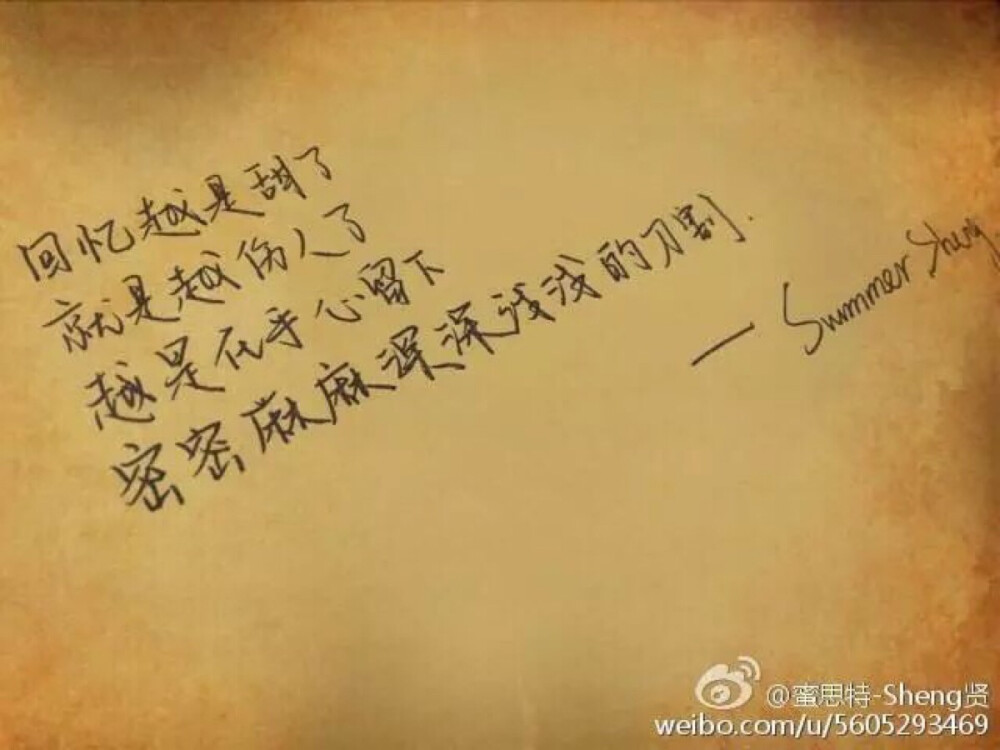 回忆越是甜了
就是越伤人了
越是在手心留下
密密麻麻深深浅浅的刀割.
— Summer Sheng
@蜜思特-Sheng贤
weibo.com/u/5605293469